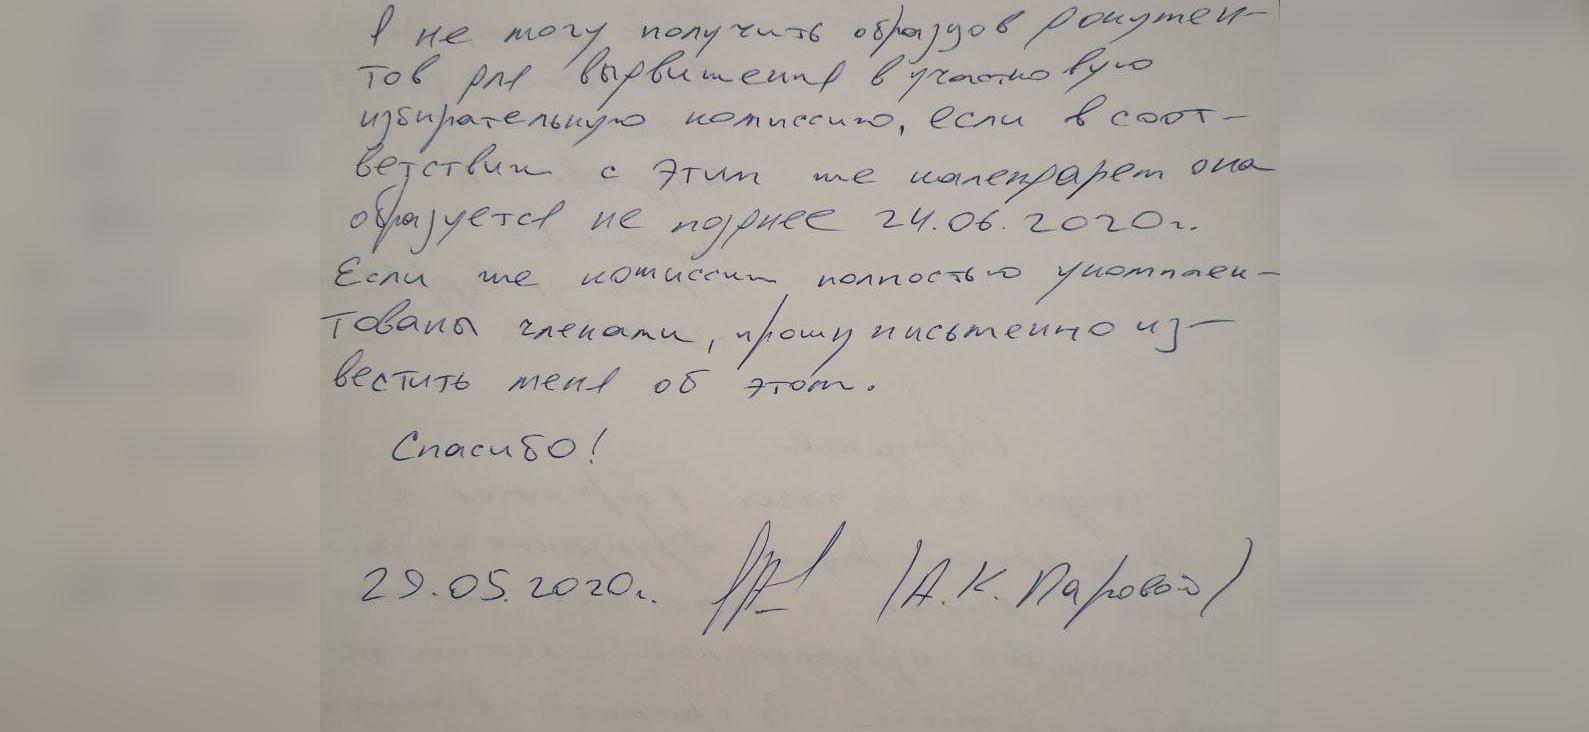 я не могу получить образцов докумен-
тов для выдвижения в участковую
избирательную комиссию, если в соот-
ветствии с этим же календарем она
образуется не позднее 24.06.2020г.
Если же комиссии полностью укомплек-
тованы членами, прошу письменно из-
вестить меня об этом.
Спасибо!
29.05.2020г. (А.К. Паровой)